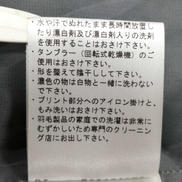 ・水や汗でぬれたまま長時間放置し
たり漂白剤及び漂白剤入りの洗剤
を使用することはおさけ下さい。
・タンブラー(回転式乾燥機)のご使
用はおさけ下さい。
・形を整えて陰干しして下さい。
・濃色の物は白物と一緒に洗わない
で下さい。
・プリント部分へのアイロン掛けと、
もみ洗いはおさけ下さい。
・羽毛製品の家庭での洗濯は非常に
むずかしいため専門のクリーニン
グ店にお出し下さい。